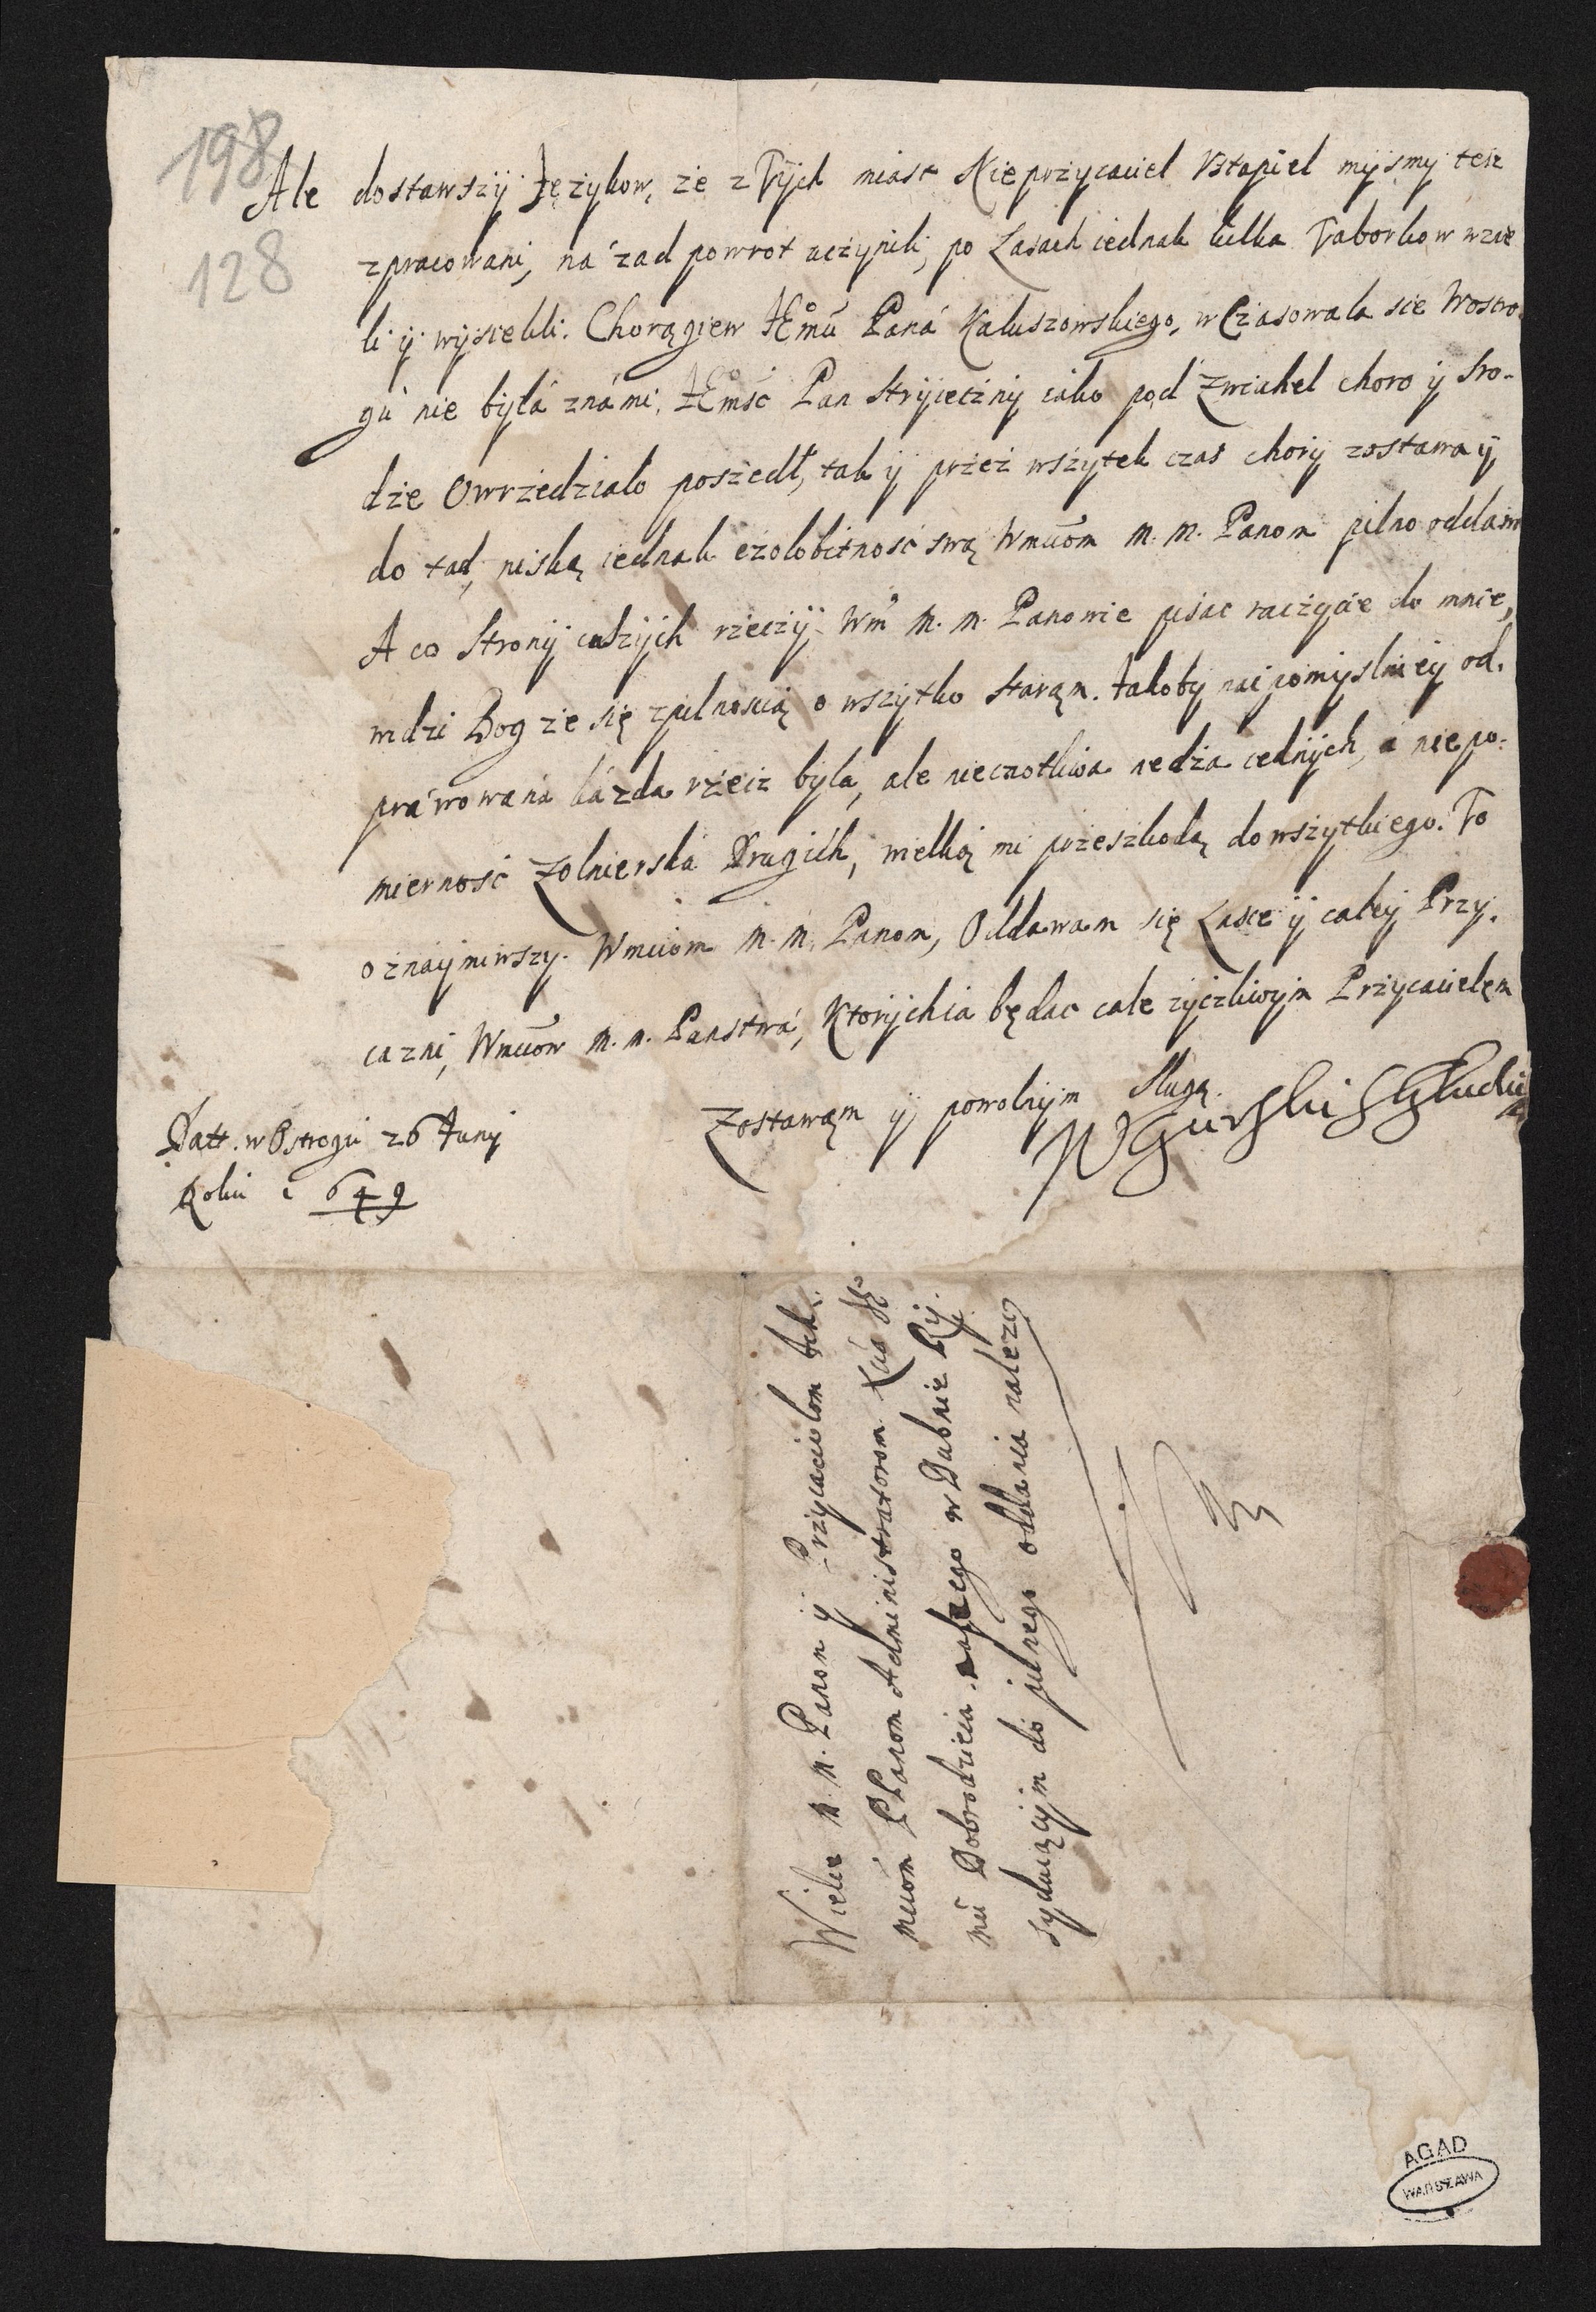 198
128
Ale dostawszÿ Językow, ze z Tÿch miast Nieprzyiaciel Vstąpieł mÿsmy tesz
zpracowani, názad powrot uczynili, po Lasach iednak kilka Taborkow wzie
li ÿ wÿsiekli. Chorągiew JEmu Paná Kaluszowskiego, wczasowała sie Wostro
gu nie bÿłá známi, JEmść Pan Stryieczny iako pod Zwiahel choro ÿ sro-
dze Owrzedziało poszedł, tak ÿ przez wszytek czas chory zostawa ÿ
do tąd, niską iednak czołobitność swą Wmciom M. M. Panom pilno oddaiw
A co Stronÿ inszÿch rzeczÿ Wm M. M. Panowie pisac raczycie do mnie,
widzi Bog ze się zpilnoscią o wszytko staram. Jakoby naipomyslnieÿ od.
práwowaná kázda rzecz była, ale niecnotliwa nedza iednÿch, a niepo.
mierność Zolnierska Drugich, wielką mi przeszkodą do wszytkiego. To
oznaÿmiwszy. Wmciom M. M. Panom, Oddawam się Łasce ÿ całeÿ Przy.
iazni, Wmciow M. M. Panstwá, Ktorÿch ia będąc cale zyczliwym Przyiacielem
Zostawam ÿ powolnÿm Slugą.
Datt. w Ostrogu 26 Junÿ
Roku 1649
Wielce M. M. Panom ÿ Przyiaciolom Ich
mciom PPanom Administratorom Xcia JE
mci Dobrodzieia naszego w Dubnie Rÿ.
syduiącÿm do pilnego oddania nalezÿ
AGAD
WARSZAWA